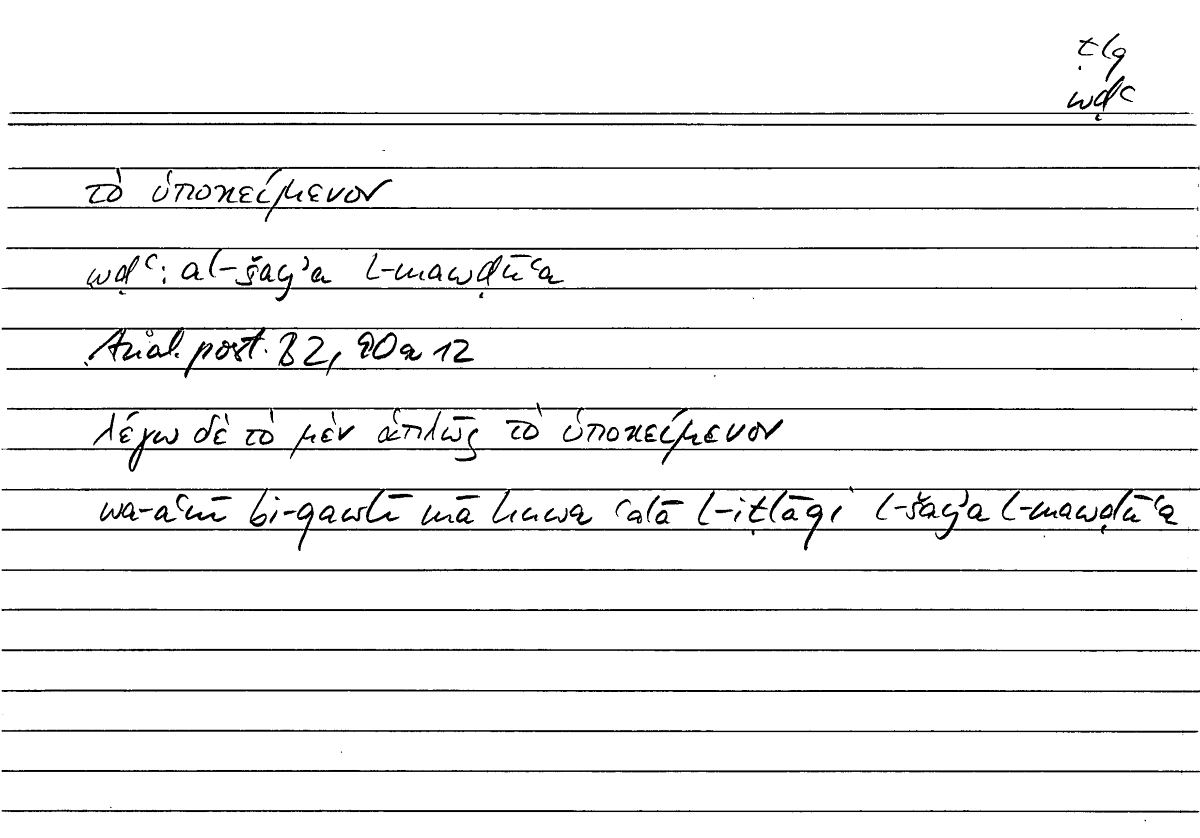 ṭlq
wḍʿ
τὸ ὑποκείμενον
wḍʿ: al-šayʾa l-mawḍūʿa
Anal. post. B 2, 90a12
λέγω δὲ τὸ μὲν ἁπλῶς τὸ ὑποκείμενον
wa-aʿnī bi-qawlī mā huwa ʿalā l-iṭlāqi l-šayʾa l-mawḍūʿa